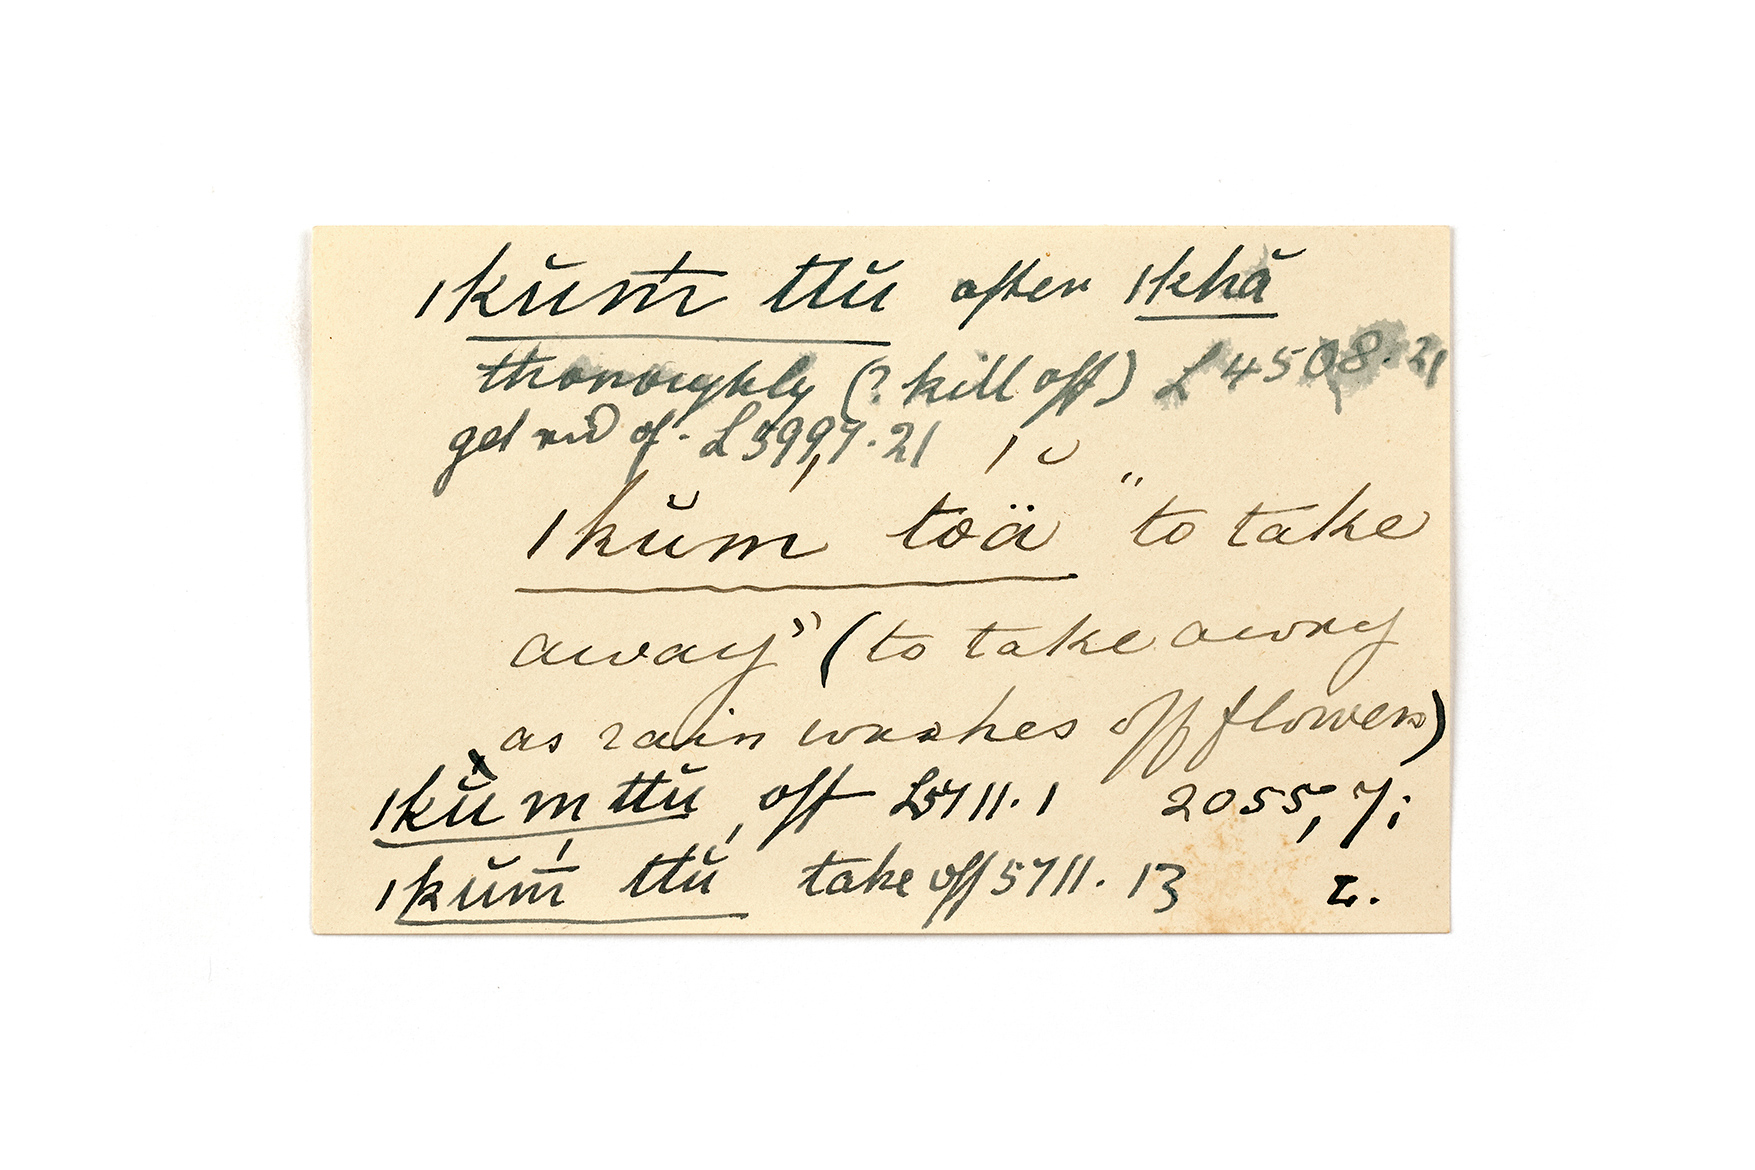 ǀkŭm̄ ttŭ often ǀkhā
thoroughly (? kill off) L 4508.21
get rid of. L 5997.21
ǀkŭm toä "to take
away" (to take away
as rain washes off flowers)
ǀkŭm ttŭ, off L5711.1 2055, 7;
ǀkŭm̄ ttŭ take off 5711. 13 L.